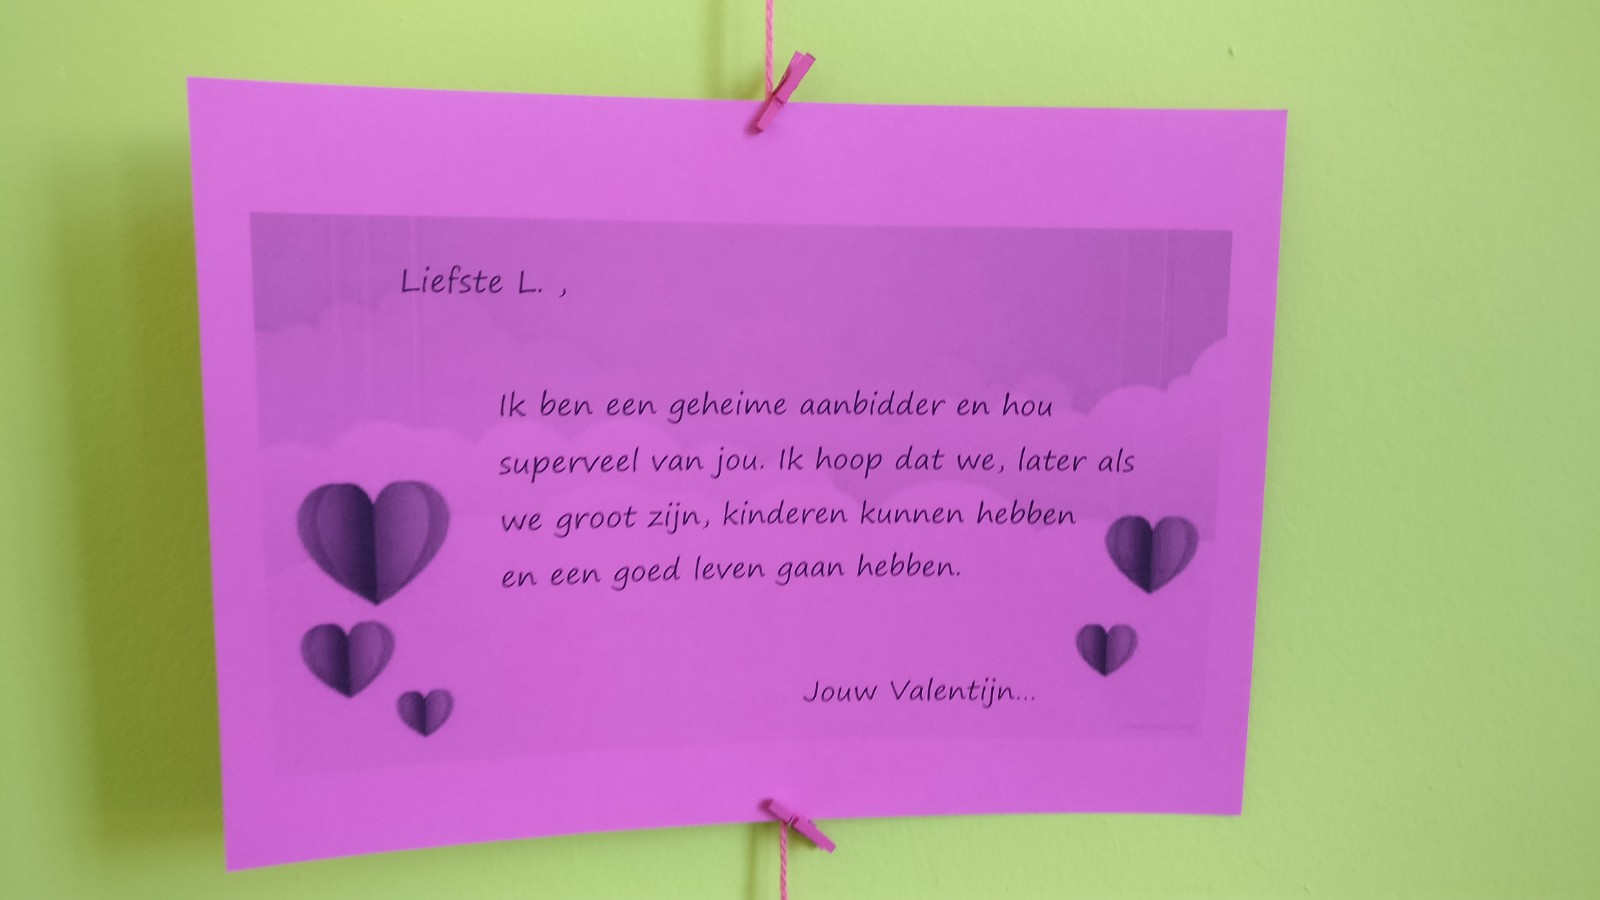 Liefste L. ,
Ik ben een geheime aanbidder en hou
superveel van jou. Ik hoop dat we, later als
we groot zijn, kinderen kunnen hebben
en een goed leven gaan hebben.
Jouw Valentijn...